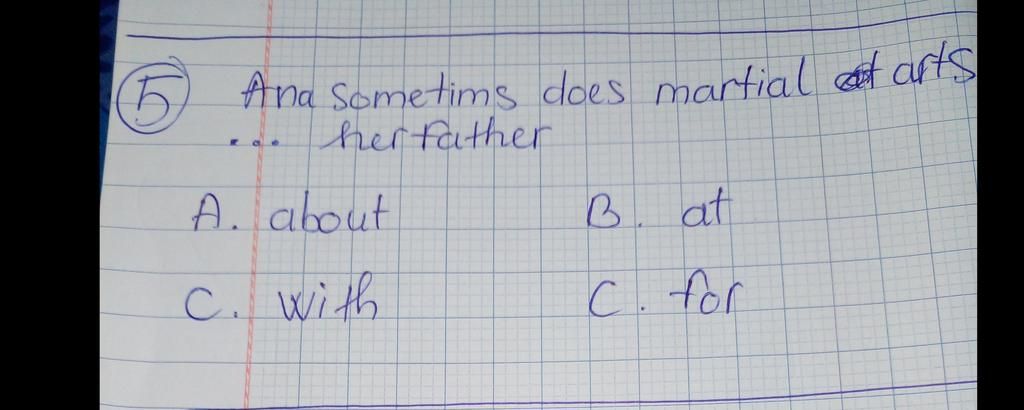 5 Ana sometims does martial arts
... her father
A. about B. at
C. with C. for